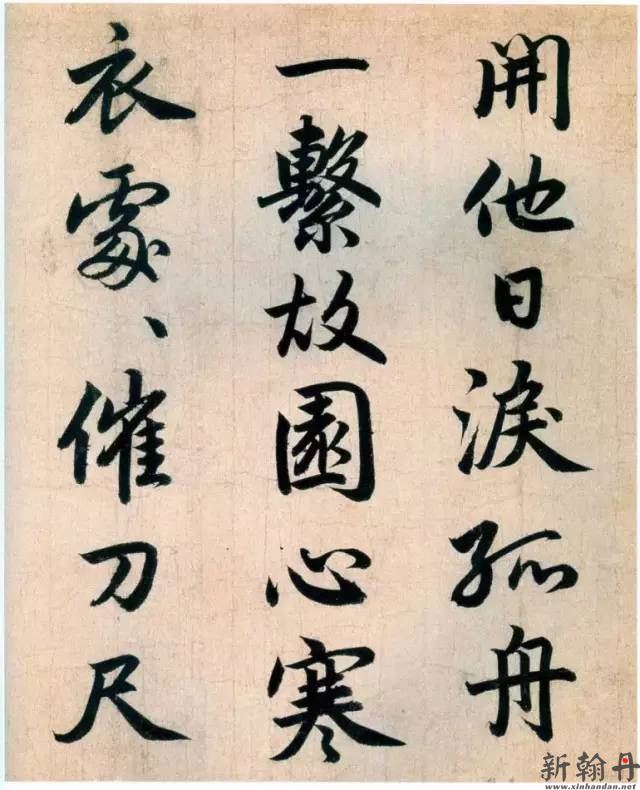 開他日淚孤舟
一繫故園心寒
衣處、催刀尺
新翰丹
www.xinhandan.net